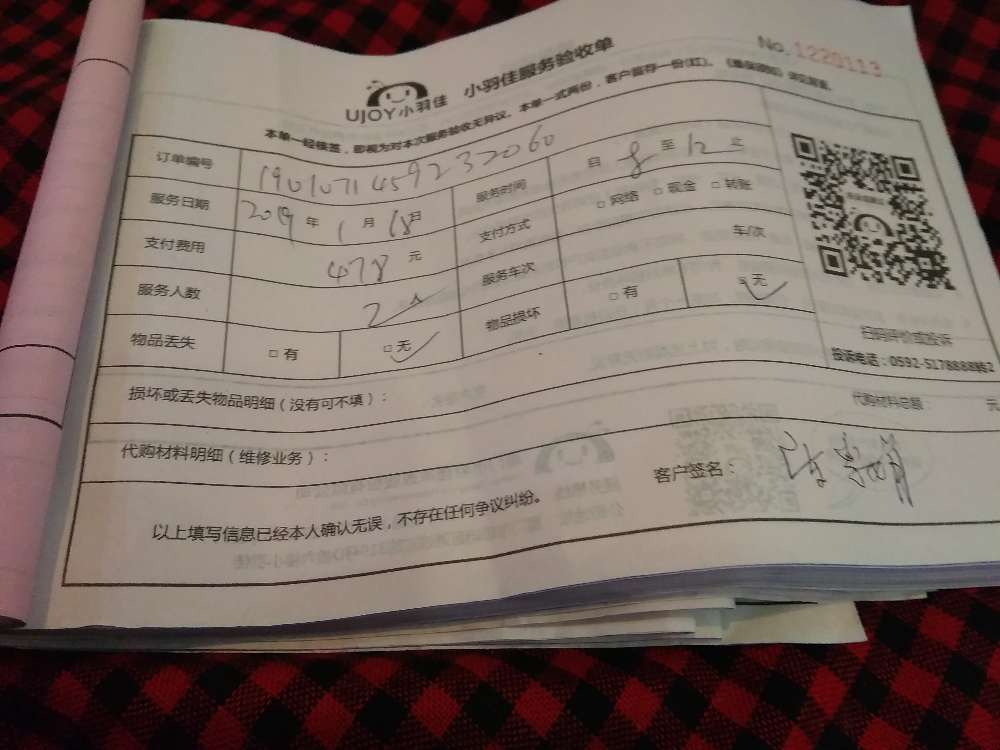 No. 1220113
UJOY小羽佳 小羽佳服务验收单
本单一经核签,即视为对本次服务验收无异议。本单一式两份,客户留存一份(红)。
订单编号 190107145923 2060
服务日期 2019 年 1 月 18 日 服务时间 自 8 至 12 止
支付费用 478 元 支付方式 □ 网络 □ 现金 □ 转账
服务人数 2 人 服务车次 车/次
物品丢失 □ 有 □ 无 物品损坏 □ 有 □ 无
扫码评价或投诉
投诉电话:0592-5178888转2
损坏或丢失物品明细(没有可不填):
代购材料明细(维修业务): 代购材料总额: 元
以上填写信息已经本人确认无误,不存在任何争议纠纷。 客户签名: